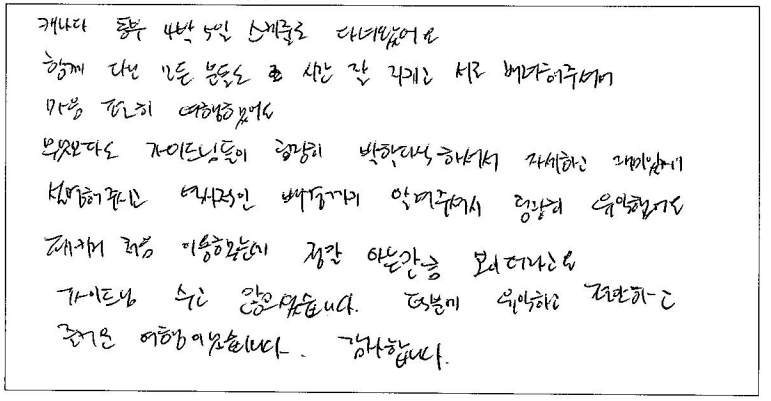 캐나다 동부 4박 5일 스케줄로 다녀왔어요
함께 다닌 모든 분들도 시간 잘 지키고 서로 배려해주셔서
마음 편히 여행했어요
무엇보다도 가이드님들이 굉장히 박학다식하셔서 자세하고 재미있게
설명해주시고 역사적인 배경까지 알려주셔서 굉장히 유익했어요
패키지 처음 이용해보는데 정말 아는만큼 보이더라고요
가이드님 수고 많으셨습니다. 덕분에 유익하고 편안하고
즐거운 여행이었습니다. 감사합니다.